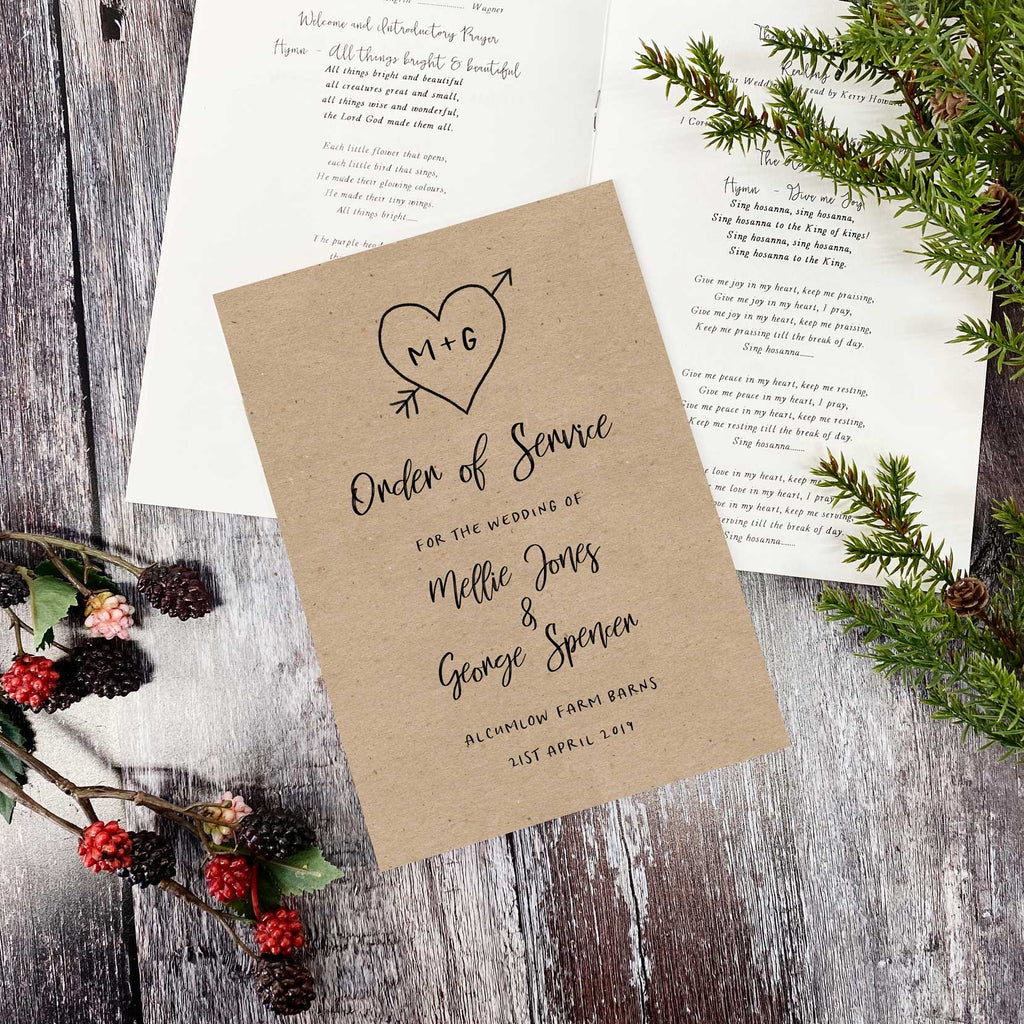 Wagner
Welcome and Introductory Prayer
Hymn - All things bright & beautiful
All things bright and beautiful
all creatures great and small,
all things wise and wonderful,
the Lord God made them all.
Each little flower that opens,
each little bird that sings,
He made their glowing colours,
He made their tiny wings.
All things bright.....
The purple-head
M+G
Order of Service
FOR THE WEDDING OF
Mellie Jones
&
George Spencer
ALCUMLOW FARM BARNS
21ST APRIL 2019
Reading
read by Kerry
The
Hymn - Give me Joy
Sing hosanna, sing hosanna,
Sing hosanna to the King of kings!
Sing hosanna, sing hosanna,
Sing hosanna to the King.
Give me joy in my heart, keep me praising,
Give me joy in my heart, I pray,
Give me joy in my heart, keep me praising,
Keep me praising till the break of day.
Sing hosanna......
Give me peace in my heart, keep me resting,
Give me peace in my heart, I pray,
Give me peace in my heart, keep me resting,
Keep me resting till the break of day.
Sing hosanna.......
love in my heart, keep me serving,
me love in my heart, I pray,
love in my heart, keep me serving,
me serving till the break of day.
Sing hosanna.......